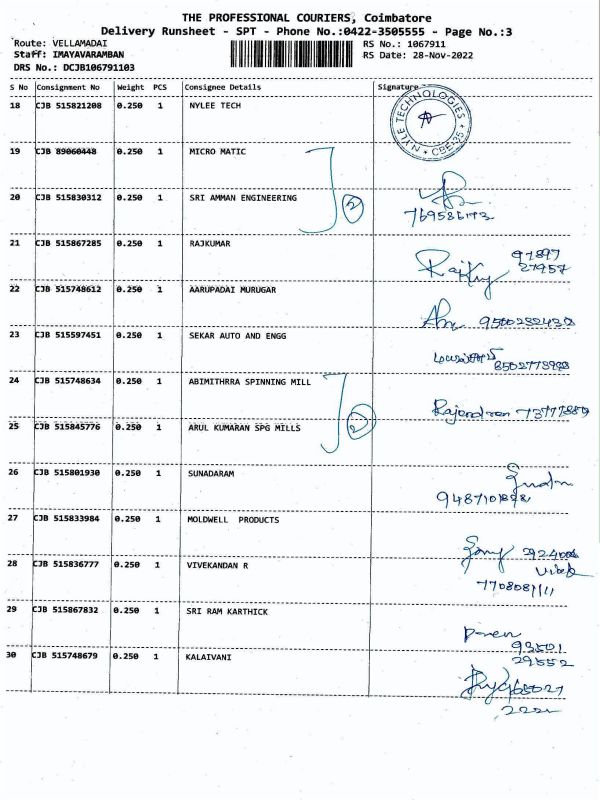 THE PROFESSIONAL COURIERS, Coimbatore
Delivery Runsheet - SPT - Phone No.:0422-3505555 - Page No.:3
Route: VELLAMADAI RS No.: 1067911
Staff: IMAYAVARAMBAN RS Date: 28-Nov-2022
DRS No.: DCJB106791103
S No Consignment No Weight PCS Consignee Details Signature
18 CJB 515821208 0.250 1 NYLEE TECH
NYLE TECHNOLOGIES
CBE-35
19 CJB 89060448 0.250 1 MICRO MATIC
20 CJB 515830312 0.250 1 SRI AMMAN ENGINEERING
2
21 CJB 515867285 0.250 1 RAJKUMAR
97897
27957
22 CJB 515748612 0.250 1 AARUPADAI MURUGAR
23 CJB 515597451 0.250 1 SEKAR AUTO AND ENGG
24 CJB 515748634 0.250 1 ABIMITHRRA SPINNING MILL
Rajendran
25 CJB 515845776 0.250 1 ARUL KUMARAN SPG MILLS
2
26 CJB 515801930 0.250 1 SUNADARAM
27 CJB 515833984 0.250 1 MOLDWELL PRODUCTS
28 CJB 515836777 0.250 1 VIVEKANDAN R
29 CJB 515867832 0.250 1 SRI RAM KARTHICK
30 CJB 515748679 0.250 1 KALAIVANI
29552